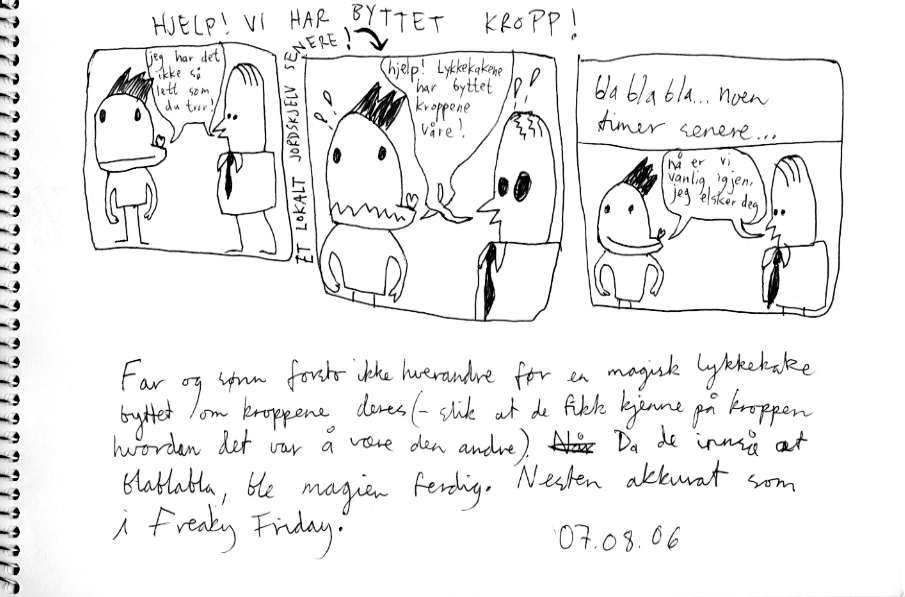 HJELP! VI HAR BYTTET KROPP!
jeg har det
ikke så
lett som
du tror!
ET LOKALT JORDSKJELV SENERE!
hjelp! Lykkekakene
har byttet
kroppene
våre!
bla bla bla... noen
timer senere...
nå er vi
vanlig igjen,
jeg elsker deg
Far og sønn forsto ikke hverandre før en magisk lykkekake
byttet om kroppene deres (- slik at de fikk kjenne på kroppen
hvordan det var å være den andre). Når Da de innså at
blablabla, ble magien ferdig. Nesten akkurat som
i Freaky Friday.
07.08.06